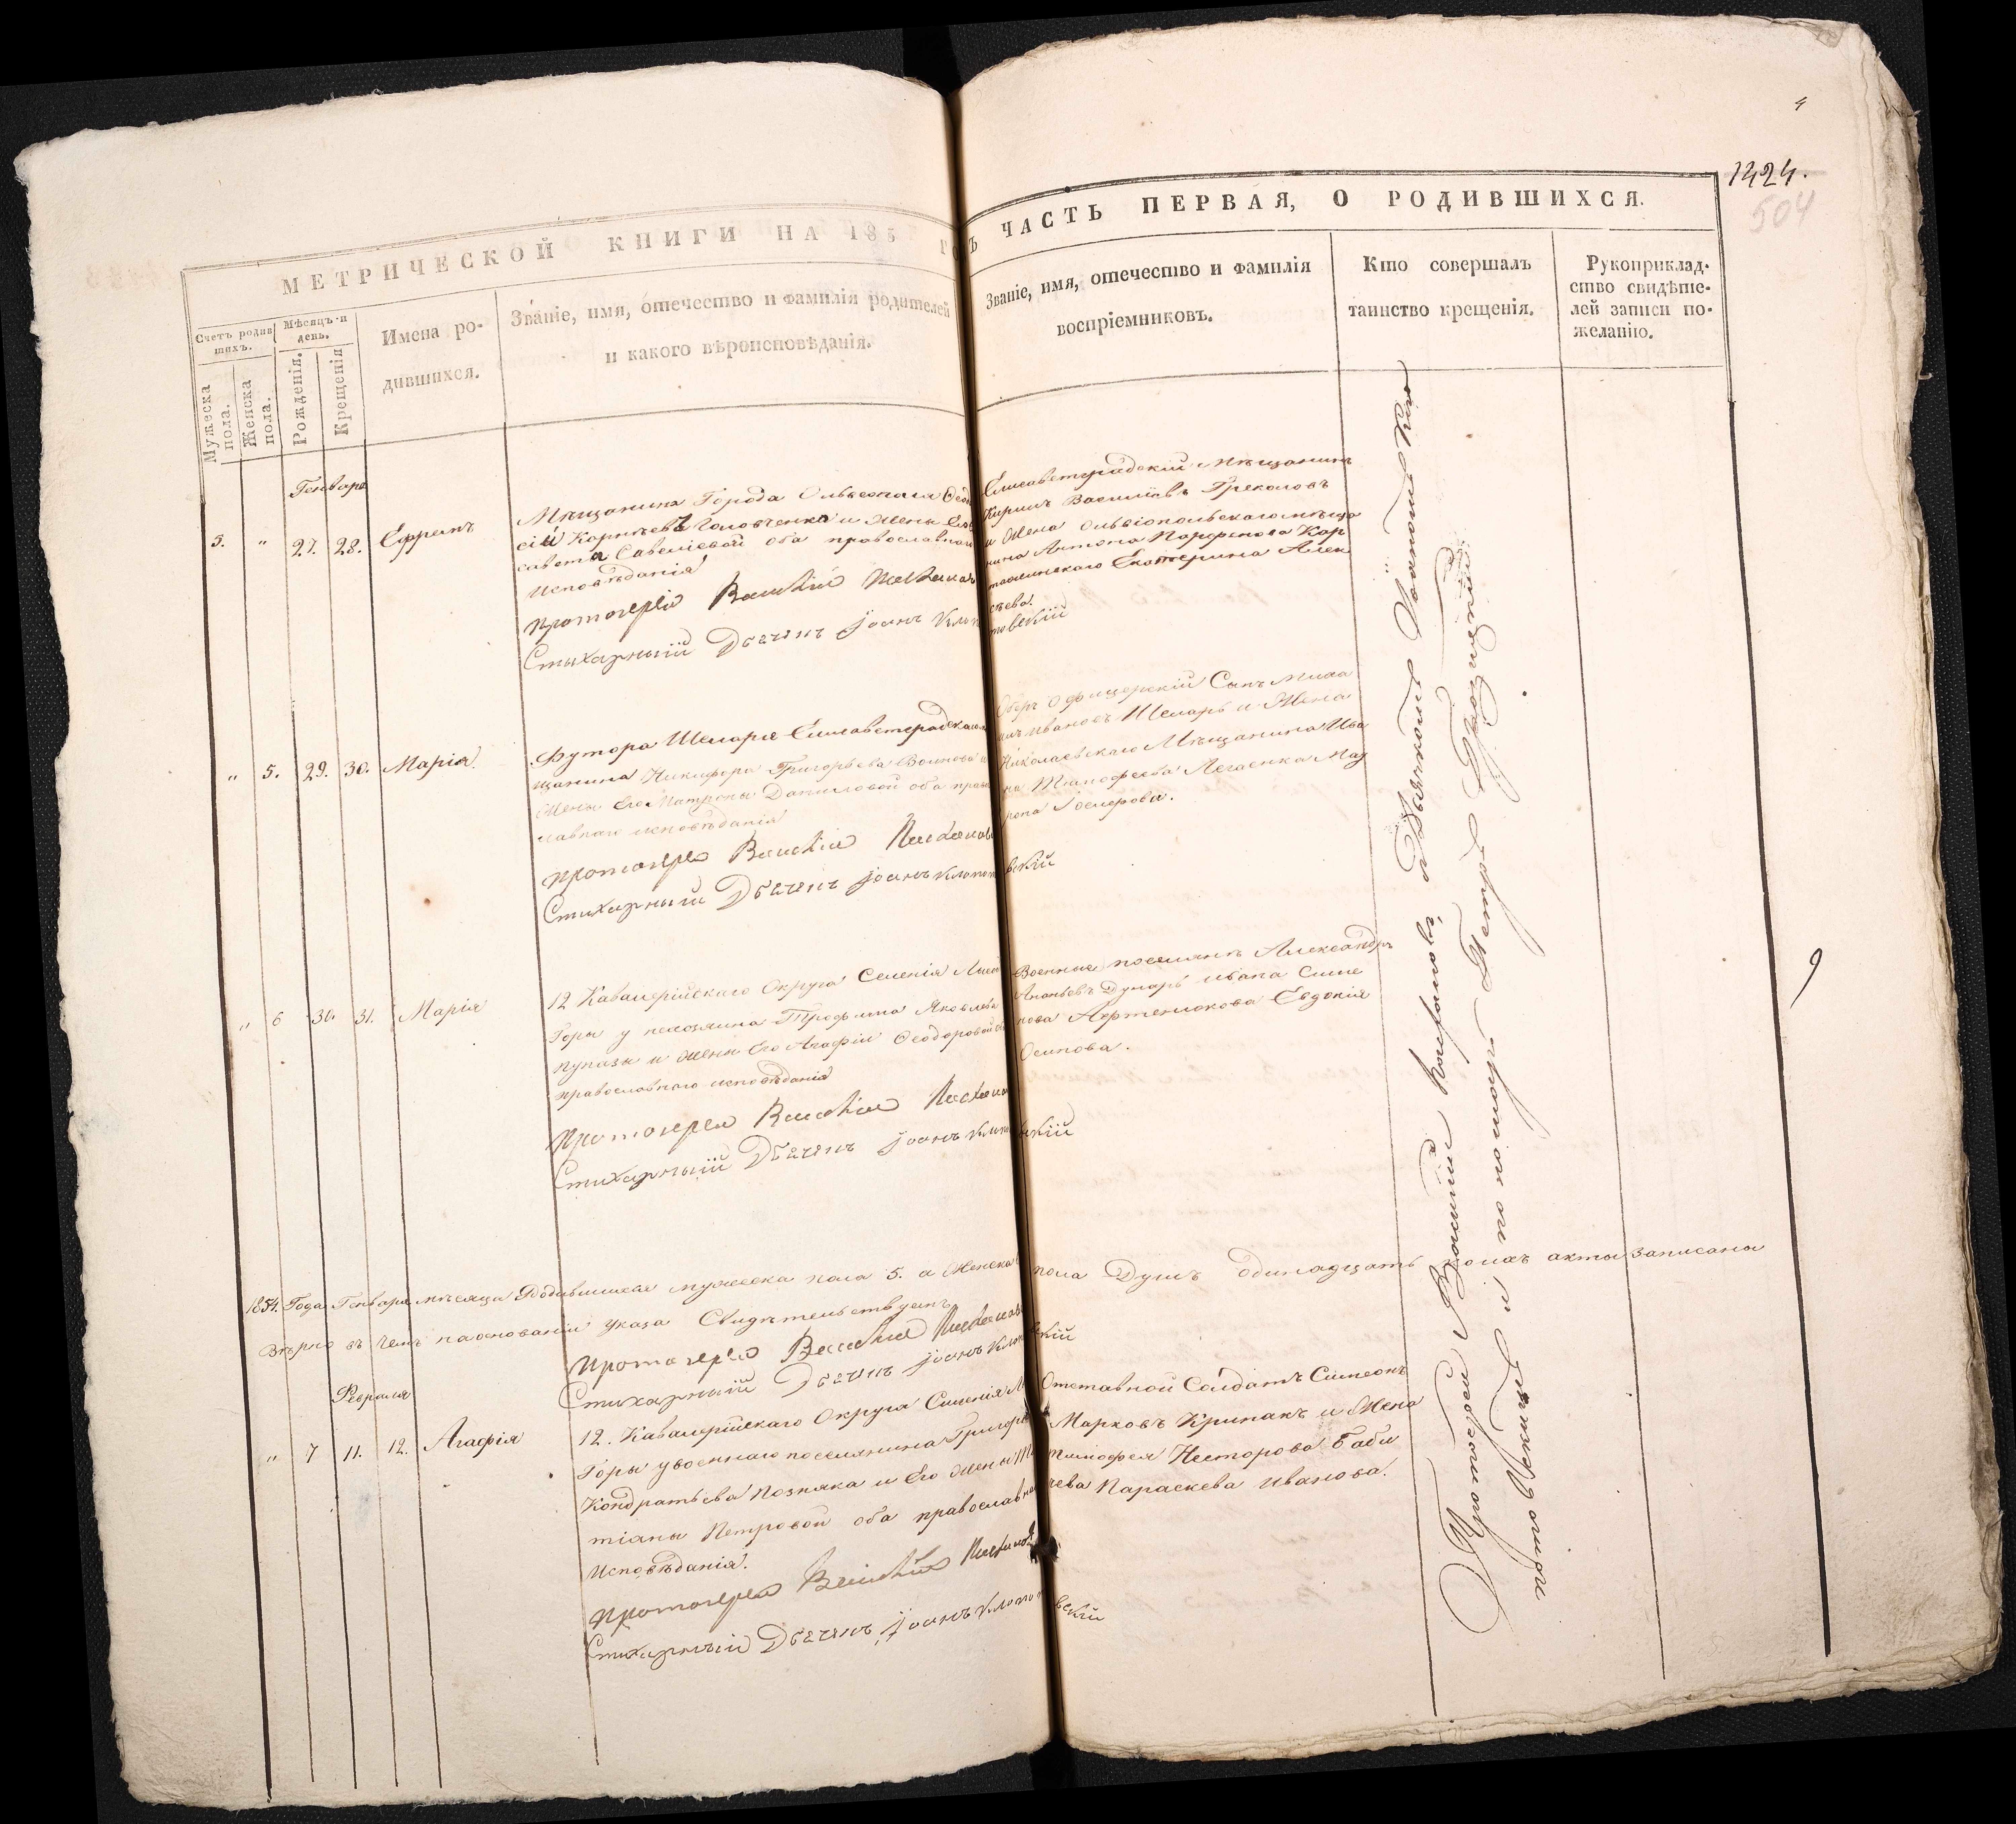 4
1424.
504
МЕТРИЧЕСКОЙ КНИГИ НА 185 годъ
ЧАСТЬ ПЕРВАЯ, О РОДИВШИХСЯ.
Счетъ родив
шихъ.
Мужеска
пола.
Женска
пола.
Мѣсяцъ и
день.
Рожденія.
Крещенія
Имена ро-
дившихся.
Званіе, имя, отечество и фамилія родителей
и какого вѣроисповѣданія.
Званіе, имя, отечество и фамилія
воспріемниковъ.
Кто совершалъ
таинство крещенія.
Рукоприклад-
ство свидѣте-
лей записи по-
желанію.
Генваря
5. " 27. 28. Ефремъ
Мѣщанина Города Ольвіополя
Корнѣева Головченка и жены
Савеліевой оба православнаго
исповѣданія
Протоіерей Василій
Стихарный Дьячекъ Іоаннъ Клопотовскій
Елисаветградскій мѣщанинъ
Кирилъ Василіевъ Греколовъ
и Жена Ольвіопольскаго мѣща
нина Антона Парфенова Кар
Екатерина Алек
сѣева.
" 5. 29. 30. Марія
Футора Шеларе Елисаветградскаго
щанина Никифора Григорьева
Жены Его Матроны Даниловой оба право
славнаго исповѣданія
Протоіерей Василій
Стихарный Дьячекъ Іоаннъ Клопотовскій
Оберъ Офицерскій Сынъ Миха
илъ Ивановъ Шеларь и Жена
Николаевскаго Мѣщанина Ива
на Тимофеева Легаенка Мат
рона
" 6 30. 31. Марія
12 Кавалерійскаго Округа Селенія Лысой
Горы у Трофима Яковлева
и жены Его Агафіи Феодоровой
православнаго исповѣданія
Протоіерей Василій
Стихарный Дьячекъ Іоаннъ Клопотовскій
Военные поселянѣ Александръ
Ананьевъ Дунарь Ивана Симе
нова Артемюкова Евдокія
Осипова.
1854. Года Генваря мѣсяца Родившихся мужеска пола 5. а Женска пола Душъ одинадцать акты записаны
Вѣрно въ чемъ на основаніи Указа Свидѣтельствуемъ
Протоіерей Василій
Стихарный Дьячекъ Іоаннъ Клопотовскій
Февраля
" 7 11. 12. Агафія
12. Кавалерійскаго Округа Селенія
Горы у военнаго поселянина Григорія
Кондратьева Позняка и Его жены
тіяны Петровой оба православнаго
Исповѣданія.
Протоіерей Василій
Стихарный Дьячекъ Іоаннъ Клопотовскій
Отставной Солдатъ Симеонъ
Марковъ Крипакъ и Жена
Тимофея Несторова Баби
чева Параскева Иванова.
Протоіерей Василій съ Дьячкомъ Іоанномъ Кло
потовскимъ и пономаремъ Петромъ